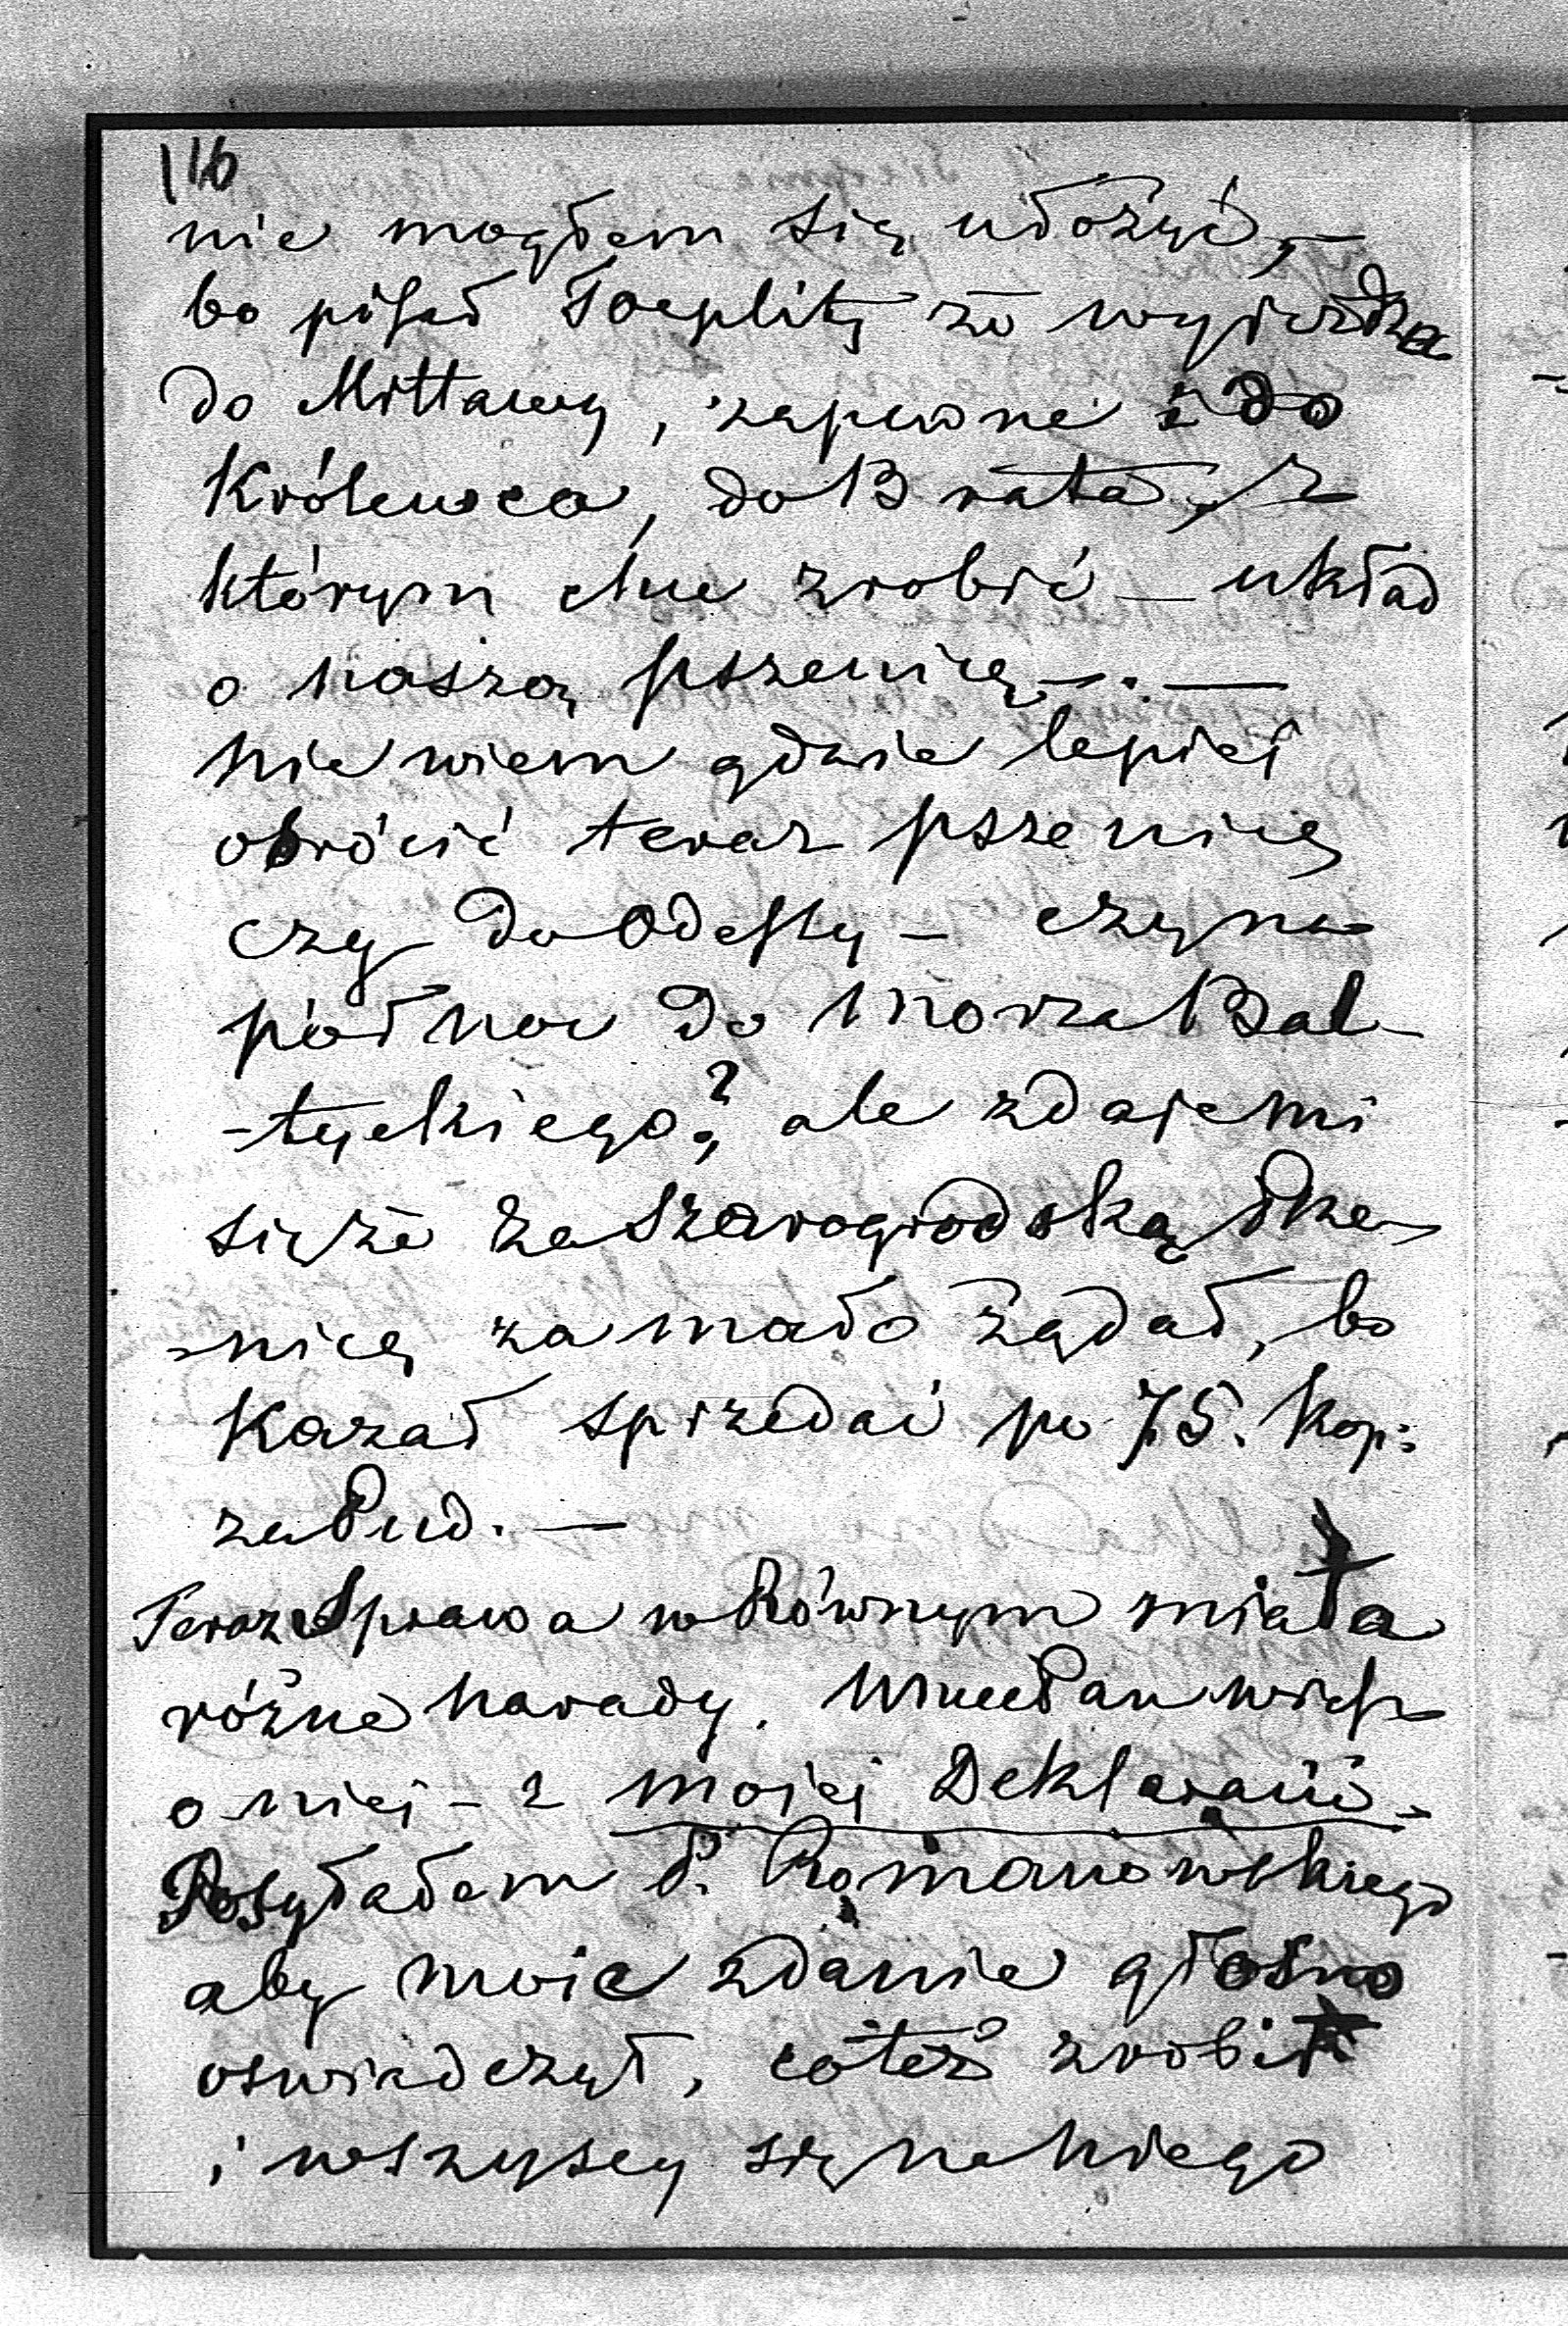 116
nie mogłem się ułożyć, —
bo pisał Toeplitz że wyjeżdża
do Mittawy, zapewne i do
Królewca, do Brata, z
którym chce zrobić — układ
o naszą pszenicę —. —
nie wiem gdzie lepiej
obrócić teraz pszenicę
czy do Odessy — czy na
północ do morza Bal-
-tyckiego? ale zdaje mi
się że za Szarogrodską Psze-
-nicę za mało żądał, bo
Kazał sprzedać po 75. kop:
za Pud. —
Teraz Sprawa w Równym miała
różne narady. Pan wiesz
o niej — z mojej Deklaracii —
Posyłałem P. Romanowskiego
aby moie zdanie głosno
oswiadczył, coteż zrobił
i wszyscy się na niego